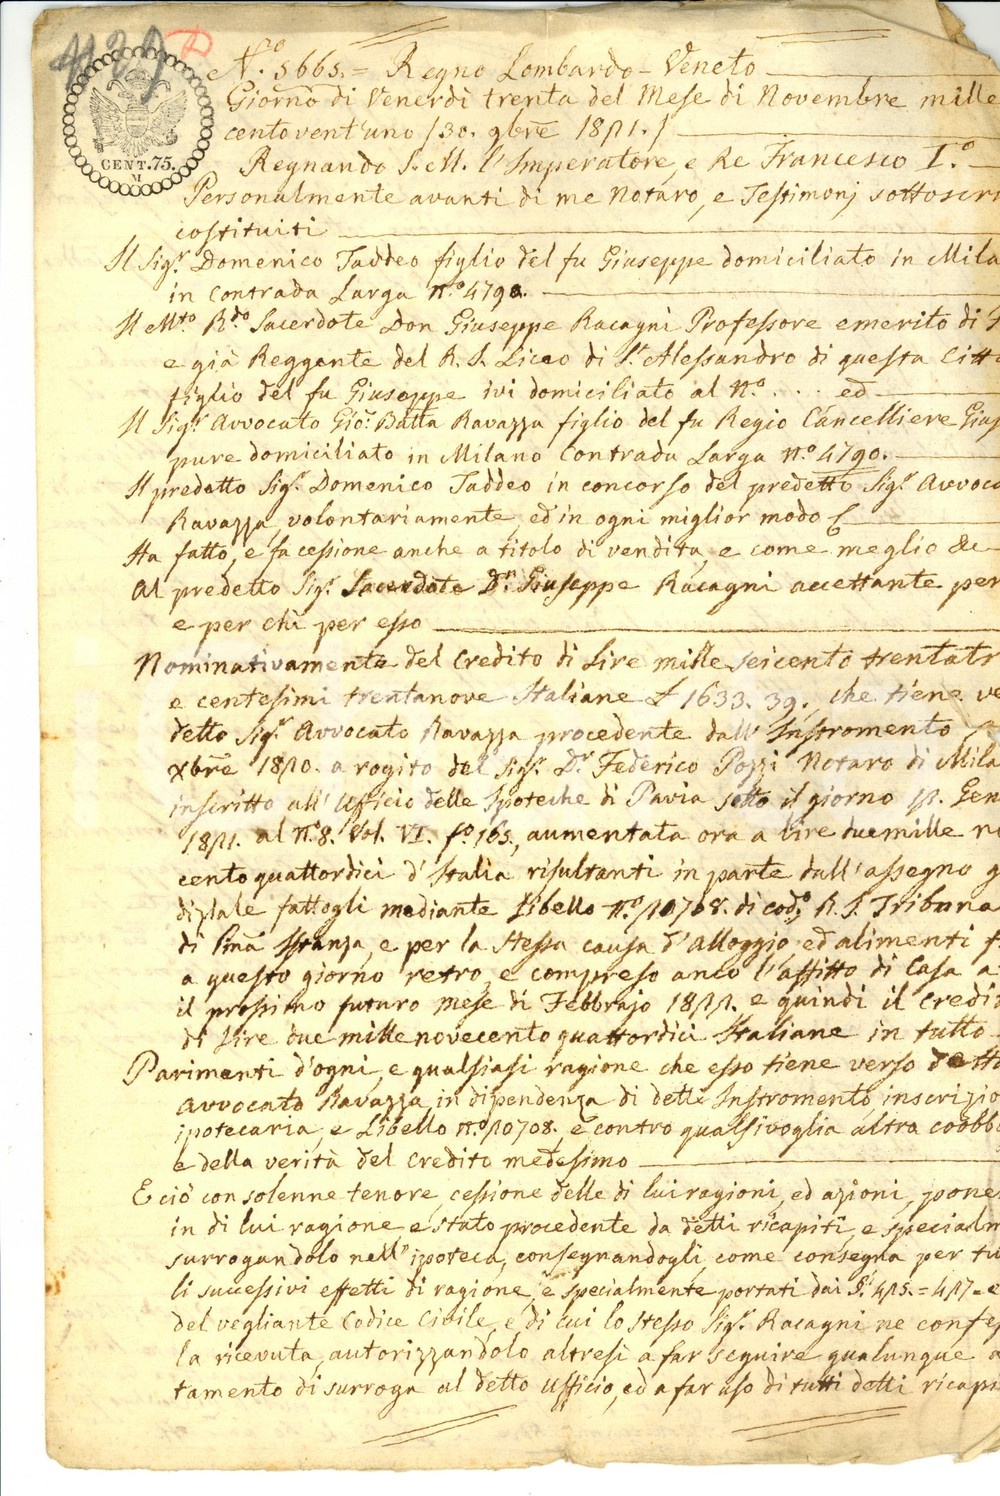 1129
CENT. 75.
M
N.º 5665. = Regno Lombardo-Veneto
Giorno di Venerdì trenta del Mese di Novembre mille
cento vent'uno / 30. 9bre 1821. /
Regnando S. M. l'Imperatore, e Re Francesco I.º
Personalmente avanti di me Notaro, e Testimonj sottoscri
costituiti
Il Sig.r Domenico Taddeo figlio del fu Giuseppe domiciliato in Mila
in Contrada Larga n.º 4790.
Il M.to R.do Sacerdote Don Giuseppe Racagni Professore emerito di
e già Reggente del R. I. Liceo di S.t Alessandro di questa Citt
figlio del fu Giuseppe ivi domiciliato al N.º . . . ed
Il Sig.r Avvocato Gio: Batta Ravazza figlio del fu Regio Cancelliere Gius
pure domiciliato in Milano Contrada Larga n.º 4790.
Il predetto Sig.r Domenico Taddeo in concorso del predetto Sig.r Avvoca
Ravazza, volontariamente, ed in ogni miglior modo
Ha fatto, e fa cessione anche a titolo di vendita, e come meglio &c
Al predetto Sig.r Sacerdote D.n Giuseppe Racagni accettante per
e per chi per esso
Nominativamente del Credito di Lire mille seicento trentatr
e centesimi trentanove Italiane £ 1633. 39., che tiene ve
detto Sig.r Avvocato Ravazza procedente dall'Instromento
Xbre 1820. a rogito del Sig.r D.r Federico Pozzi Notaro di Mila
inscritto all'Ufficio delle Ipoteche di Pavia sotto il giorno 12. Gen
1821. al N.º 8. Vol. VI. f.º 165., aumentata ora a Lire due mille n
cento quattordici d'Italia risultanti in parte dall'assegno g
diziale fattogli mediante Libello N.º 20708. di cod.º R. I. Tribuna
di P.ma Istanza, e per la stessa causa d'alloggio, ed alimenti f
a questo giorno retro, e compreso anco l'affitto di Casa a
il prossimo futuro mese di Febbrajo 1822. e quindi il credi
di Lire due mille novecento quattordici Italiane in tutto
Parimenti d'ogni, e qualsiasi ragione che esso tiene verso detto
Avvocato Ravazza, in dipendenza di detti Instromento, inscrizio
ipotecaria, e Libello N.º 20708., e contro qualsivoglia altra coobb
e della verità del credito medesimo
E ciò con solenne tenore, cessione delle di lui ragioni, ed azioni, pone
in di lui ragione e stato procedente da detti ricapiti, e specialm
surrogandolo nell'ipoteca, consegnandogli, come consegna per tu
li successivi effetti di ragione, e specialmente portati dai §.i 425. = 427. = e
del vegliante Codice Civile, e di cui lo stesso Sig.r Racagni ne confes
la ricevuta, autorizzandolo altresì a far seguire qualunque a
tamento di surroga al detto Ufficio, ed a far uso di tutti detti ricapi